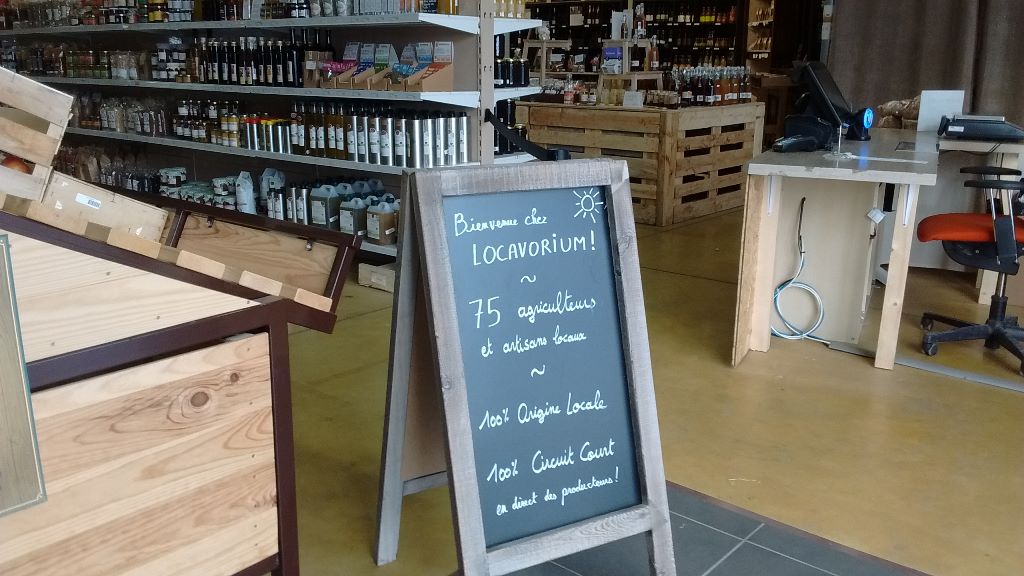 Bienvenue chez
LOCAVORIUM!
~
75 agriculteurs
et artisans locaux
~
100% Origine Locale
100% Circuit Court
en direct des producteurs!